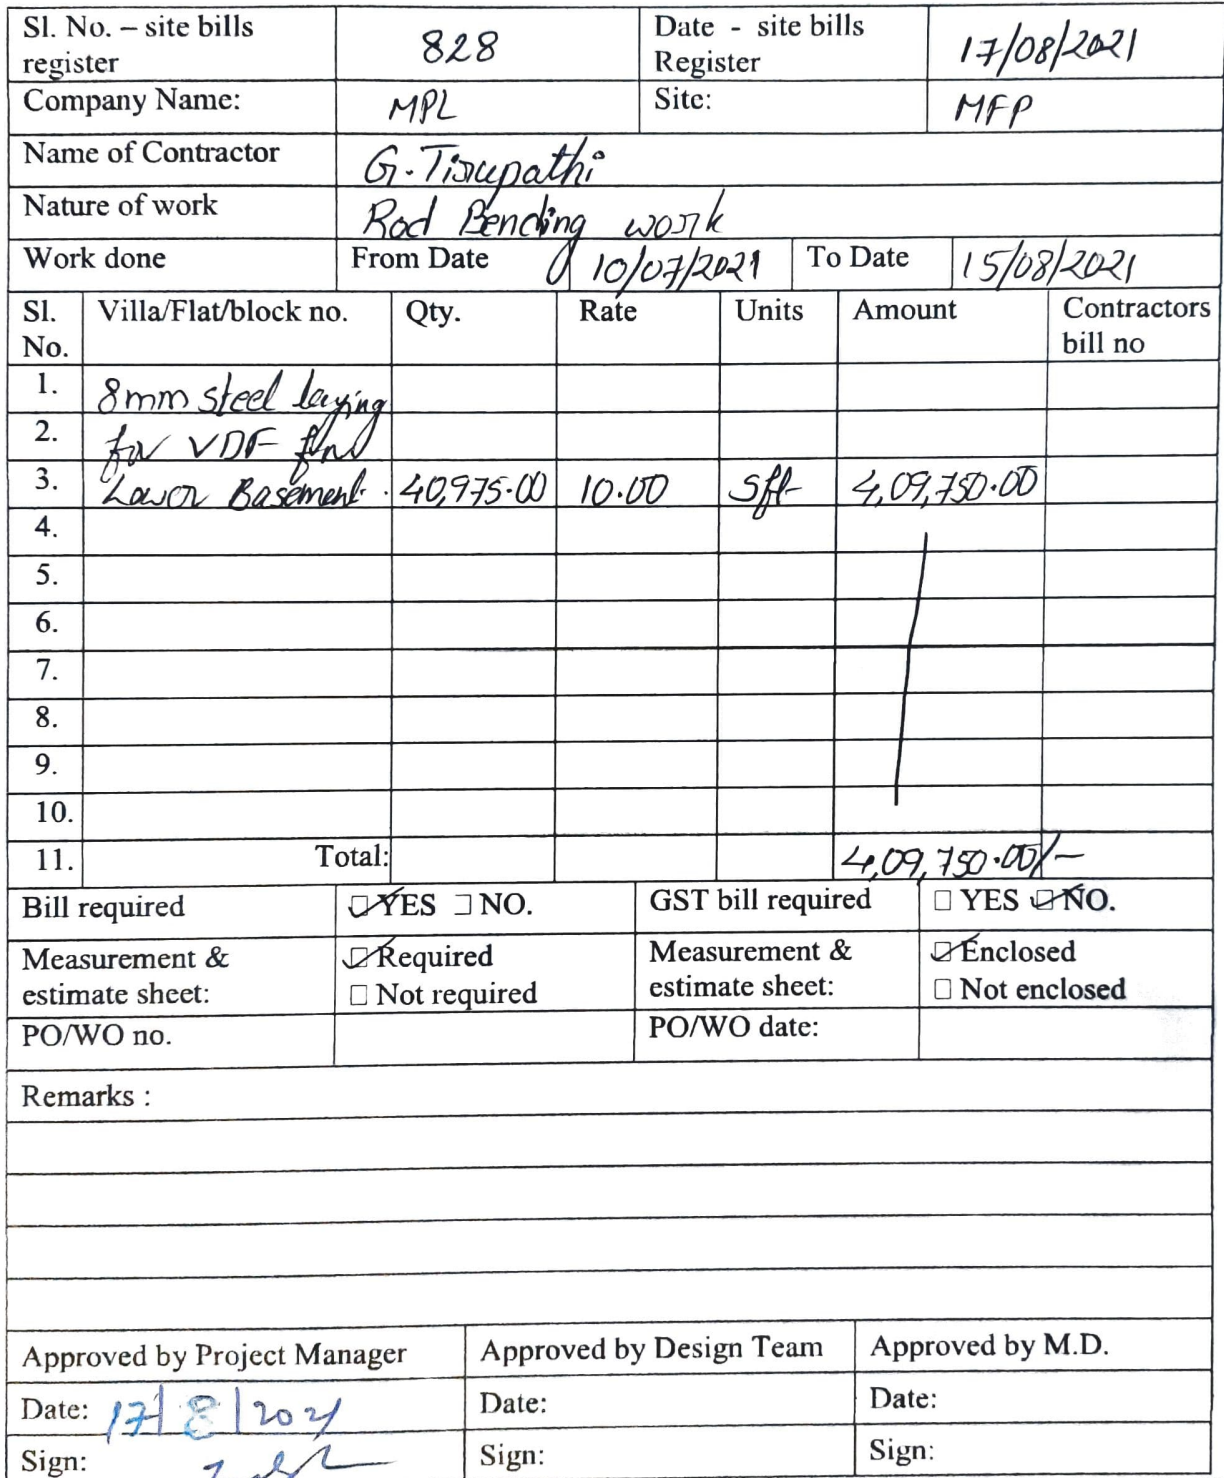 Sl. No. – site bills register 828 Date - site bills Register 17/08/2021
Company Name: MPL Site: MFP
Name of Contractor G. Tirupathi
Nature of work Rod Bending work
Work done From Date 10/07/2021 To Date 15/08/2021
Sl. No. Villa/Flat/block no. Qty. Rate Units Amount Contractors bill no
1. 8mm steel laying
2. for VDF
3. Lower Basement. 40,975.00 10.00 Sft 4,09,750.00
4.
5.
6.
7.
8.
9.
10.
11. Total: 4,09,750.00/-
Bill required ☑ YES ☐ NO. GST bill required ☐ YES ☑ NO.
Measurement & estimate sheet: ☑ Required ☐ Not required Measurement & estimate sheet: ☑ Enclosed ☐ Not enclosed
PO/WO no. PO/WO date:
Remarks :
Approved by Project Manager Approved by Design Team Approved by M.D.
Date: 17/8/2021 Date: Date:
Sign: Sign: Sign: